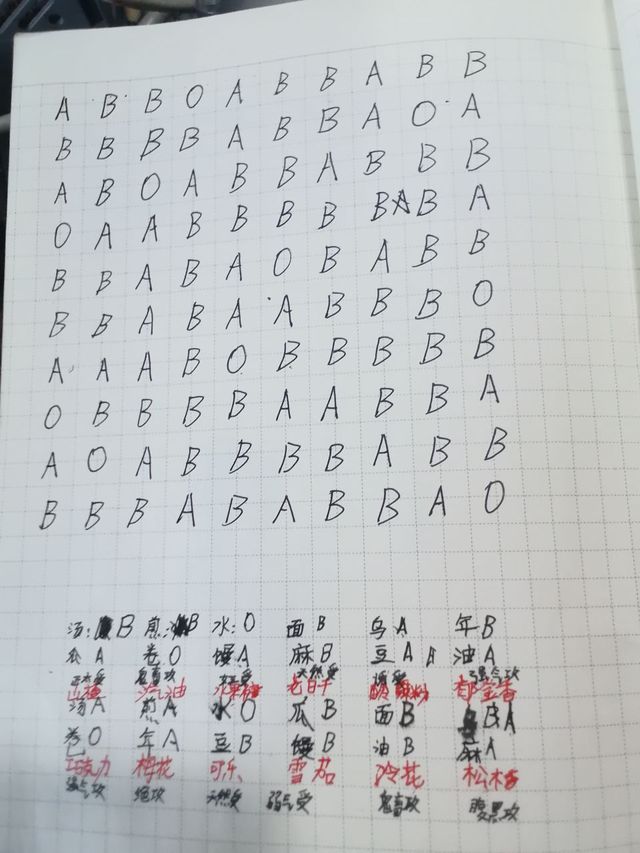 A B B O A B B A B B
B B B B A B B A O A
A B O A B B A B B B
O A A B B B B B A B A
B B A B A O B A B B
B B A B A A B B B O
A A A B O B B B B B
O B B B B A A B B A
A O A B B B B A B B
B B B A B A B B A O
汤: B 煎 B 水: O 面 B 乌 A 年 B
瓜 A 卷 O 馒 A 麻 B 豆 A A 油 A
鬼畜攻 天然受 强气攻
汽油 水果糖 老白干 郁金香
汤 A 煎 A 水 O 瓜 B 面 B B A
卷 O 年 A 豆 B 馒 B 油 B 麻 A
巧克力 梅花 可乐 雪茄 冷花 松木香
强气攻 绝攻 天然受 弱气受 鬼畜攻 腹黑攻